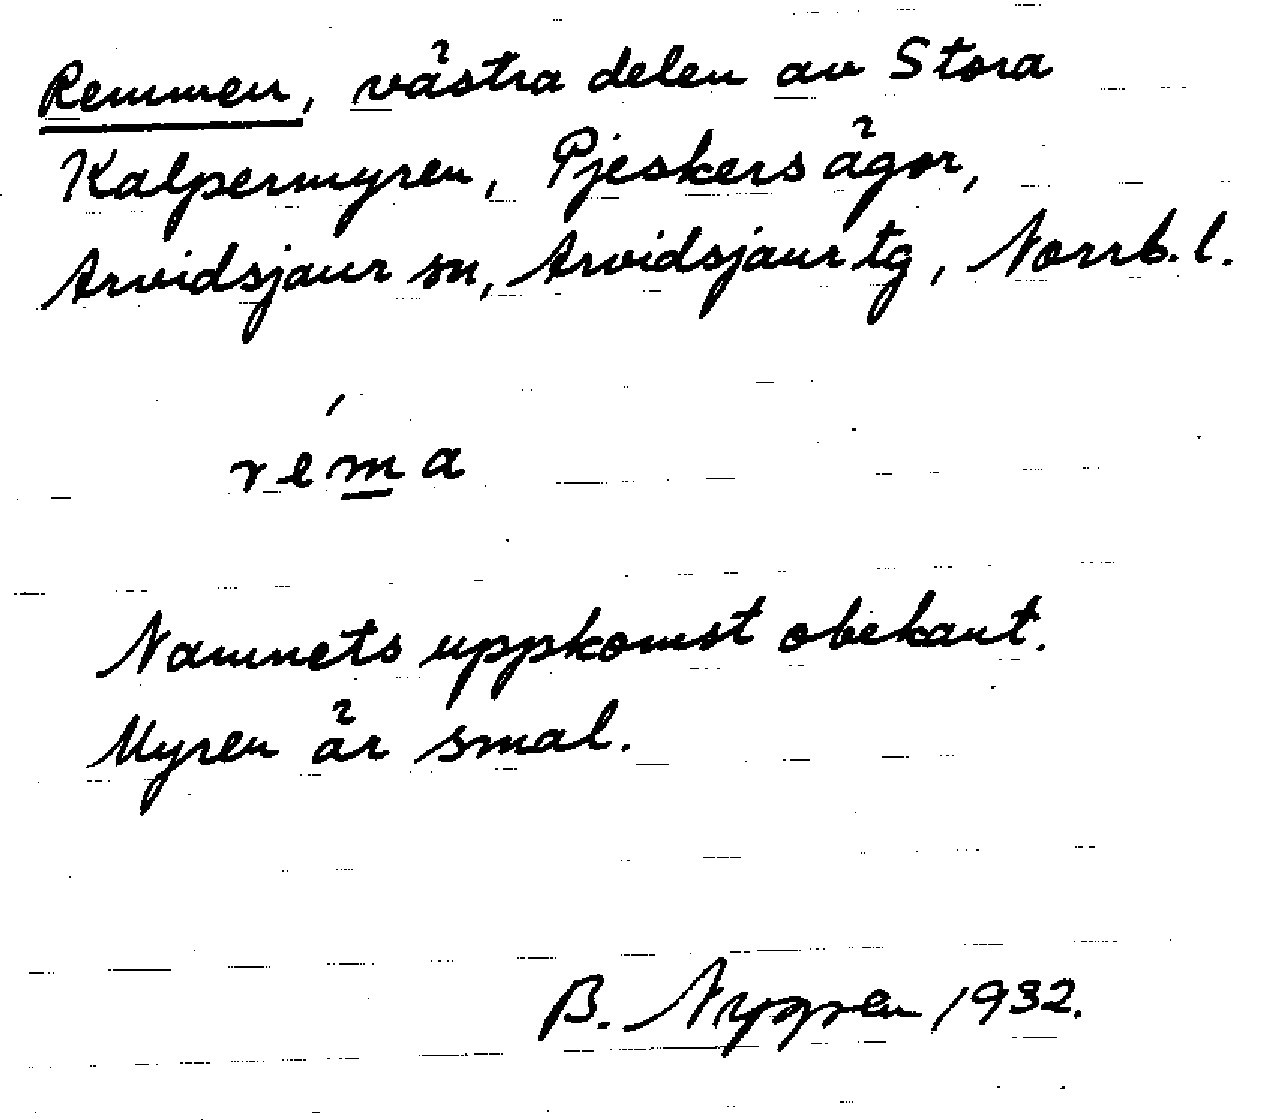 Remmen, västra delen av Stora
Kalpermyren, Pjeskers ägor,
Arvidsjaur sn, Arvidsjaur tg, Norrb. l.
réma
Namnets uppkomst obekant.
Myren är smal.
B. Nygren 1932.